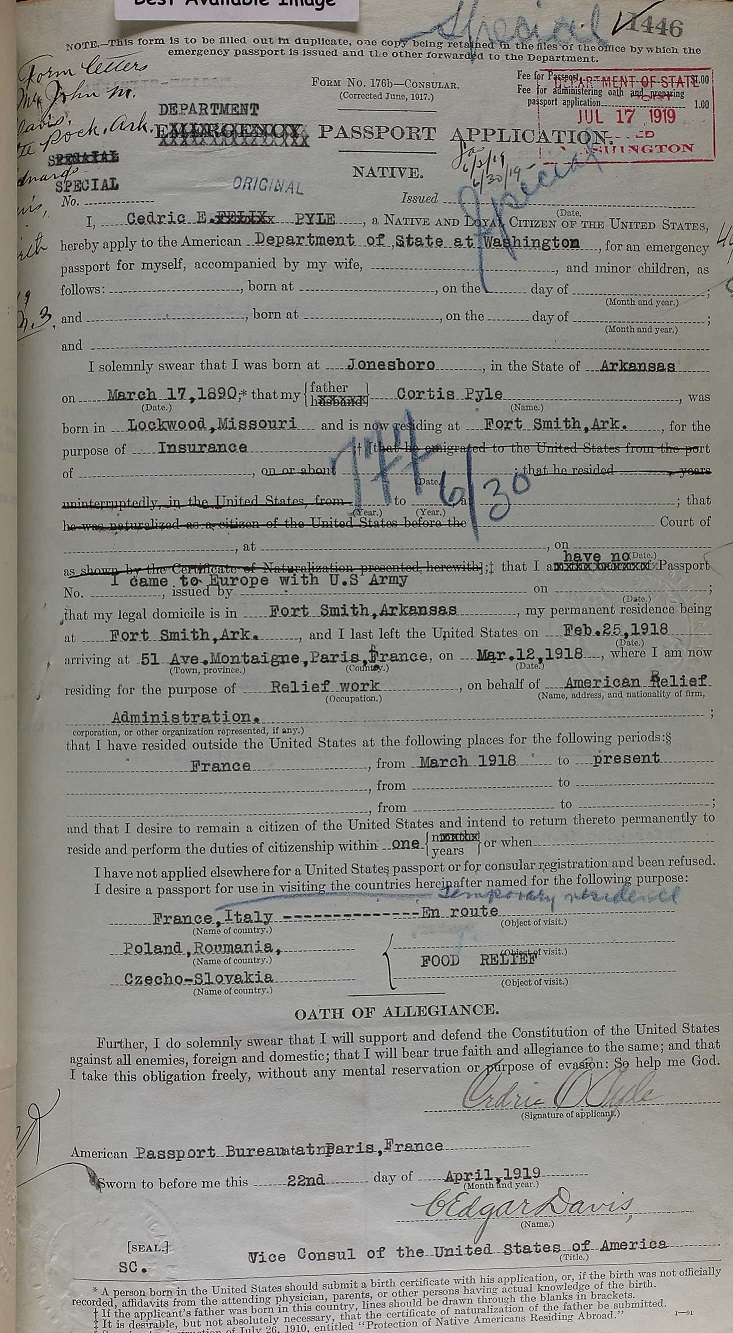 Best Available Image
Special
1446
NOTE.—This form is to be filled out in duplicate, one copy being retained in the files of the office by which the
emergency passport is issued and the other forwarded to the Department.
Form letters
Mr. John M.
Davis,
Rock, Ark.
Form No. 176b—Consular.
(Corrected June, 1917.)
Fee for Passport $1.00
Fee for administering oath and preparing
passport application 1.00
DEPARTMENT OF STATE
JUL 17 1919
WASHINGTON
DEPARTMENT
EMERGENCY PASSPORT APPLICATION.
SPECIAL
SPECIAL
ORIGINAL
NATIVE.
6/2/19
6/30/19
Special
No.
Issued
(Date.)
I, Cedric E. FELIX PYLE, a NATIVE AND LOYAL CITIZEN OF THE UNITED STATES,
hereby apply to the American Department of State at Washington, for an emergency
passport for myself, accompanied by my wife, , and minor children, as
follows: , born at , on the day of ;
(Month and year.)
and , born at , on the day of ;
(Month and year.)
and
I solemnly swear that I was born at Jonesboro, in the State of Arkansas
on March 17,1890,* that my {father husband} Cortis Pyle, was
(Date.) (Name.)
born in Lockwood,Missouri and is now residing at Fort Smith,Ark., for the
purpose of Insurance † [that he emigrated to the United States from the port
of , on or about ; that he resided years
(Date.)
uninterruptedly, in the United States, from to , at ; that
(Year.) (Year.)
he was naturalized as a citizen of the United States before the Court of
6/30
, at , on
(Date.)
have no
as shown by the Certificate of Naturalization presented herewith];‡ that I a Passport
I came to Europe with U.S Army
No. , issued by on ;
(Date.)
that my legal domicile is in Fort Smith,Arkansas, my permanent residence being
at Fort Smith,Ark., and I last left the United States on Feb.25,1918
(Date.)
arriving at 51 Ave.Montaigne,Paris,France, on Mar.12,1918, where I am now
(Town, province.) (Country.) (Date.)
residing for the purpose of Relief work, on behalf of American Relief
(Occupation.) (Name, address, and nationality of firm,
Administration. ;
corporation, or other organization represented, if any.)
that I have resided outside the United States at the following places for the following periods:§
France, from March 1918 to present
, from to
, from to ;
and that I desire to remain a citizen of the United States and intend to return thereto permanently to
reside and perform the duties of citizenship within one {months years} or when
I have not applied elsewhere for a United States passport or for consular registration and been refused.
I desire a passport for use in visiting the countries hereinafter named for the following purpose:
temporary residence
France,Italy --------------En route
(Name of country.) (Object of visit.)
Poland,Roumania,
(Name of country.) (Object of visit.)
FOOD RELIEF
Czecho-Slovakia
(Name of country.) (Object of visit.)
OATH OF ALLEGIANCE.
Further, I do solemnly swear that I will support and defend the Constitution of the United States
against all enemies, foreign and domestic; that I will bear true faith and allegiance to the same; and that
I take this obligation freely, without any mental reservation or purpose of evasion: So help me God.
Cedric E Pyle
(Signature of applicant.)
American Passport Bureau at Paris,France
Sworn to before me this 22nd day of April,1919
(Month and year.)
C Edgar Davis,
(Name.)
[SEAL.]
Vice Consul of the United States of America
(Title.)
SC.
* A person born in the United States should submit a birth certificate with his application, or, if the birth was not officially
recorded, affidavits from the attending physician, parents, or other persons having actual knowledge of the birth.
† If the applicant's father was born in this country, lines should be drawn through the blanks in brackets.
‡ It is desirable, but not absolutely necessary, that the certificate of naturalization of the father be submitted.
of July 26, 1910, entitled "Protection of Native Americans Residing Abroad." 1—91